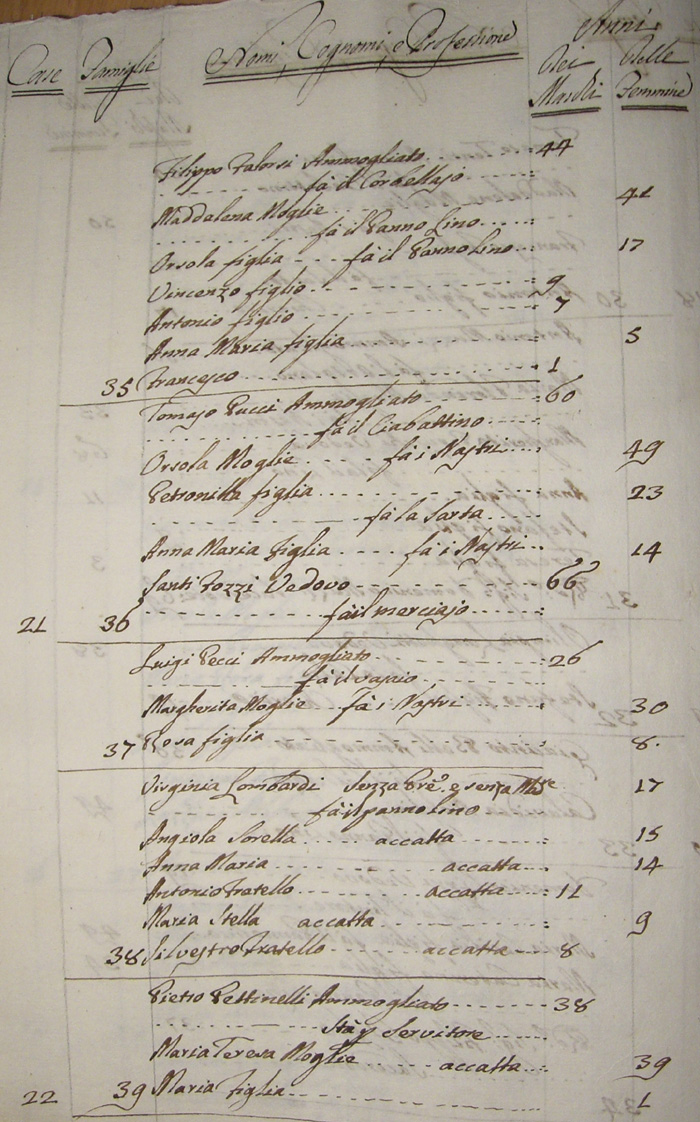 Case Famiglie Nomi, Cognomi, e Professione Anni
Dei Maschi Delle Femmine
Filippo Falorsi Ammogliato 44
fà il Corbellajo
Maddalena Moglie 41
fà il Panno Lino
Orsola figlia fà il Panno Lino 17
Vincenzo figlio 9
Antonio figlio 7
Anna Maria figlia 5
35 Francesco 1
Tomaso Pucci Ammogliato 60
fà il Ciabattino
Orsola Moglie fà i Nastri 49
Petronilla figlia 23
fà la Sarta
Anna Maria figlia fà i Nastri 14
Santi Pozzi Vedovo 66
21 36 fà il merciajo
Luigi Pecci Ammogliato 26
fà il vasaio
Margherita Moglie fà i Nastri 30
37 Rosa figlia 8
Virginia Lombardi Senza Pre. e senza Mre 17
fà il panno lino
Angiola Sorella accatta 15
Anna Maria accatta 14
Antonio Fratello accatta 11
Maria Stella accatta 9
38 Silvestro Fratello accatta 8
Pietro Pettinelli Ammogliato 38
Stà p Servitore
Maria Teresa Moglie accatta 39
22 39 Maria Figlia 1